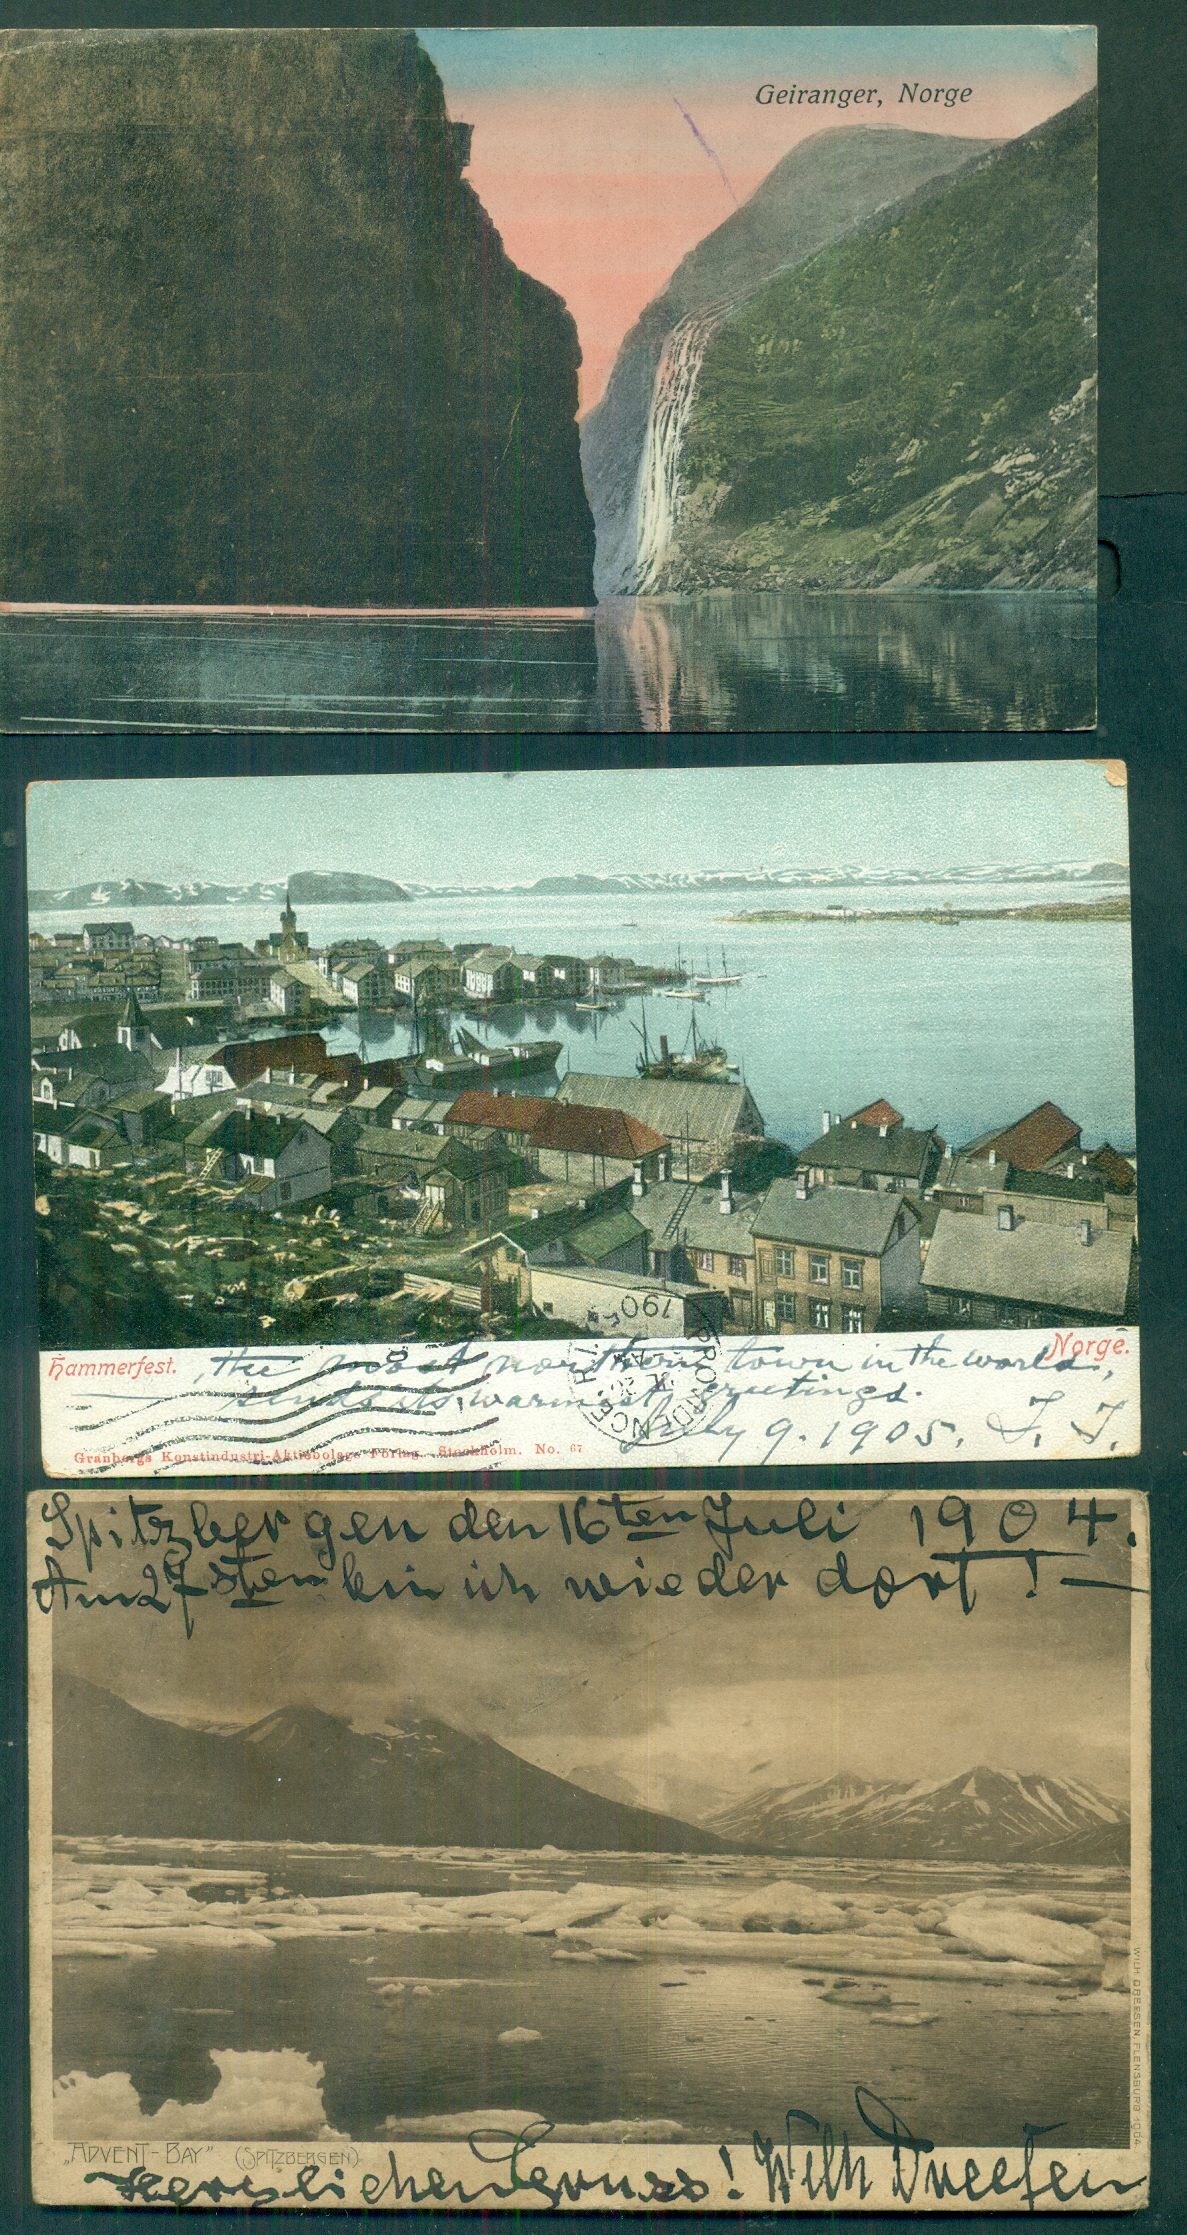 Geiranger, Norge
Hammerfest.
Norge.
, the most northern town in the world,
sends its warmest greetings.
July 9. 1905. J. J.
PROVIDENCE, R.I.
1905
Granbergs Konstindustri-Aktiebolags Förlag Stockholm. No. 67
Spitzbergen den 16ten Juli 1904.
Am 27sten bin ich wieder dort! —
WILH. DREESEN, FLENSBURG 1904.
„ADVENT-BAY" (SPITZBERGEN)
Herzlichen Gruss! Wilh Dreesen